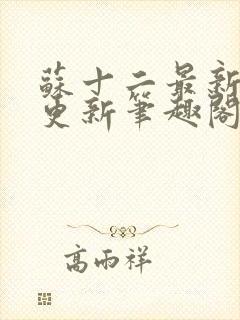 蘇十二最新
更新筆趣閣
高雨祥